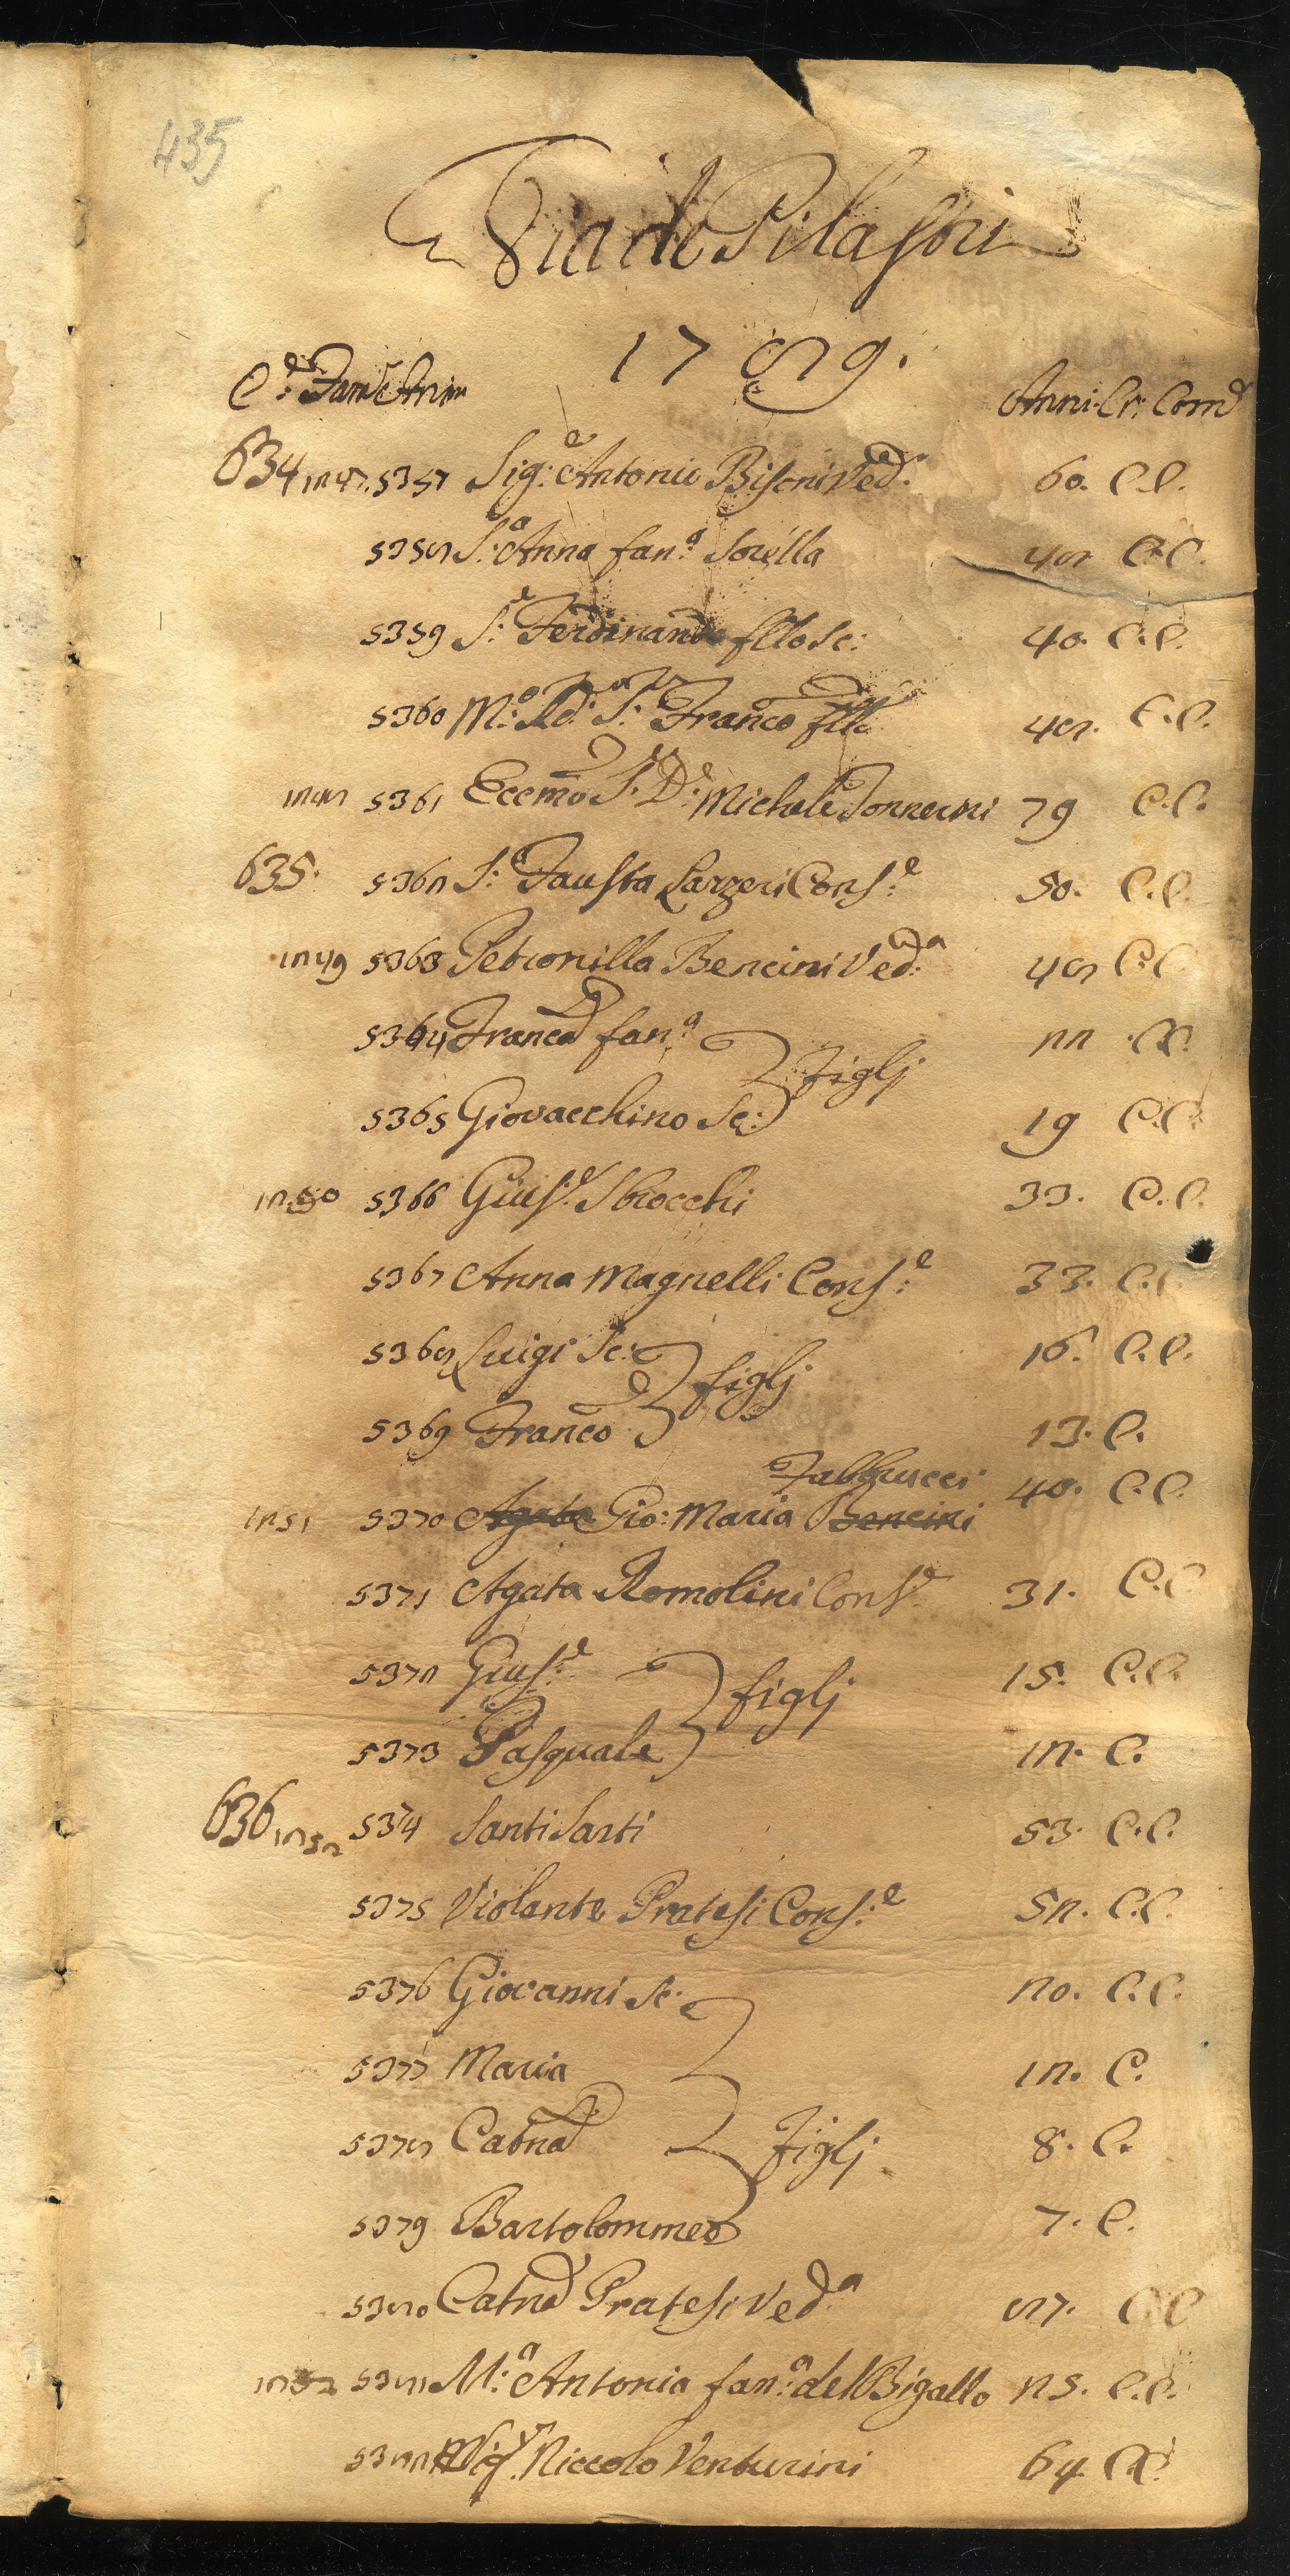 435
Via de Pilastri
1789.
C.e Fam. Anim Anni. Cr: Com.
634 1247. 5357 Sig.e Antonio Bisoni Ved.o 60. C.C.
5358 S.a Anna fan.a Sorella 48 C.C.
5359 S.e Ferdinando fllo Sc: 40. C.C.
5360 M.o Rd.o S.r Franco fllo 48. C.C.
1248 5361 Eccmo S.r D.e Michele 79 C.C.
635. 5362 S.a Fausta Larzeri Cons.e 50. C.C.
1249 5363 Petronilla Bencini Ved.a 48 C.C.
5364 Franca fan.a 22 C.C.
figlj
5365 Giovacchino Sc: 19 C.C.
1250 5366 Gius.e Sbrocchi 33. C.C.
5367 Anna Magnelli Cons.e 33. C.C.
5368 Luigi Sc: 16. C.C.
figlj
5369 Franco 13. C.
Fabbrucci 40. C.C.
1251 5370 Agata Gio: Maria Bencini
5371 Agata Romolini Cons.e 31. C.C.
5372 Gius.e 15. C.C.
figlj
5373 Pasquale 12. C.
636 1252 5374 Santi Sarti 53. C.C.
5375 Violante Pratesi Cons.e 52. C.C.
5376 Giovanni Sc: 20. C.C.
5377 Maria 12. C.
5378 Catna figlj 8. C.
5379 Bartolommeo 7. C.
5380 Catna Pratesi Ved.a 87. C.C.
5381 M.a Antonia fan.a del Bigallo 25. C.C.
5382 Niccolo Venturini 64. C.C.